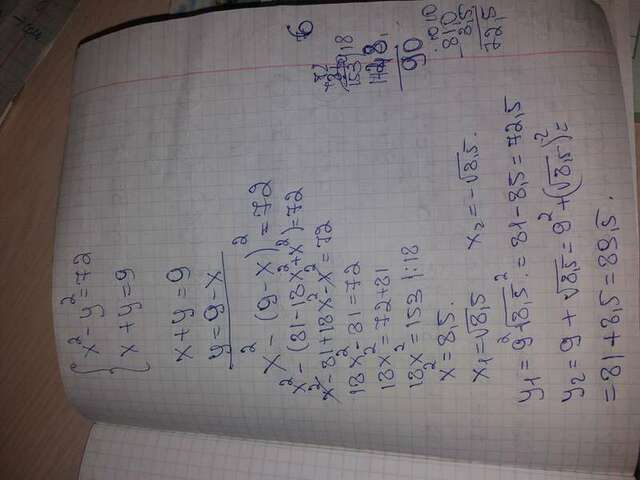 x² - y² = 72
x + y = 9
x + y = 9
y = 9 - x
x² - (9 - x)² = 72
x² - (81 - 18x² + x²) = 72
x² - 81 + 18x² - x² = 72
18x² - 81 = 72
18x² = 72 + 81
18x² = 153 |:18
x² = 8,5.
x₁ = √8,5 x₂ = -√8,5.
y₁ = 9² √8,5.² = 81 - 8,5 = 72,5
y₂ = 9 + √8,5 = 9² + (√8,5)² =
= 81 + 8,5 = 89,5.
153 | 18
90
810
- 8,5
72,5